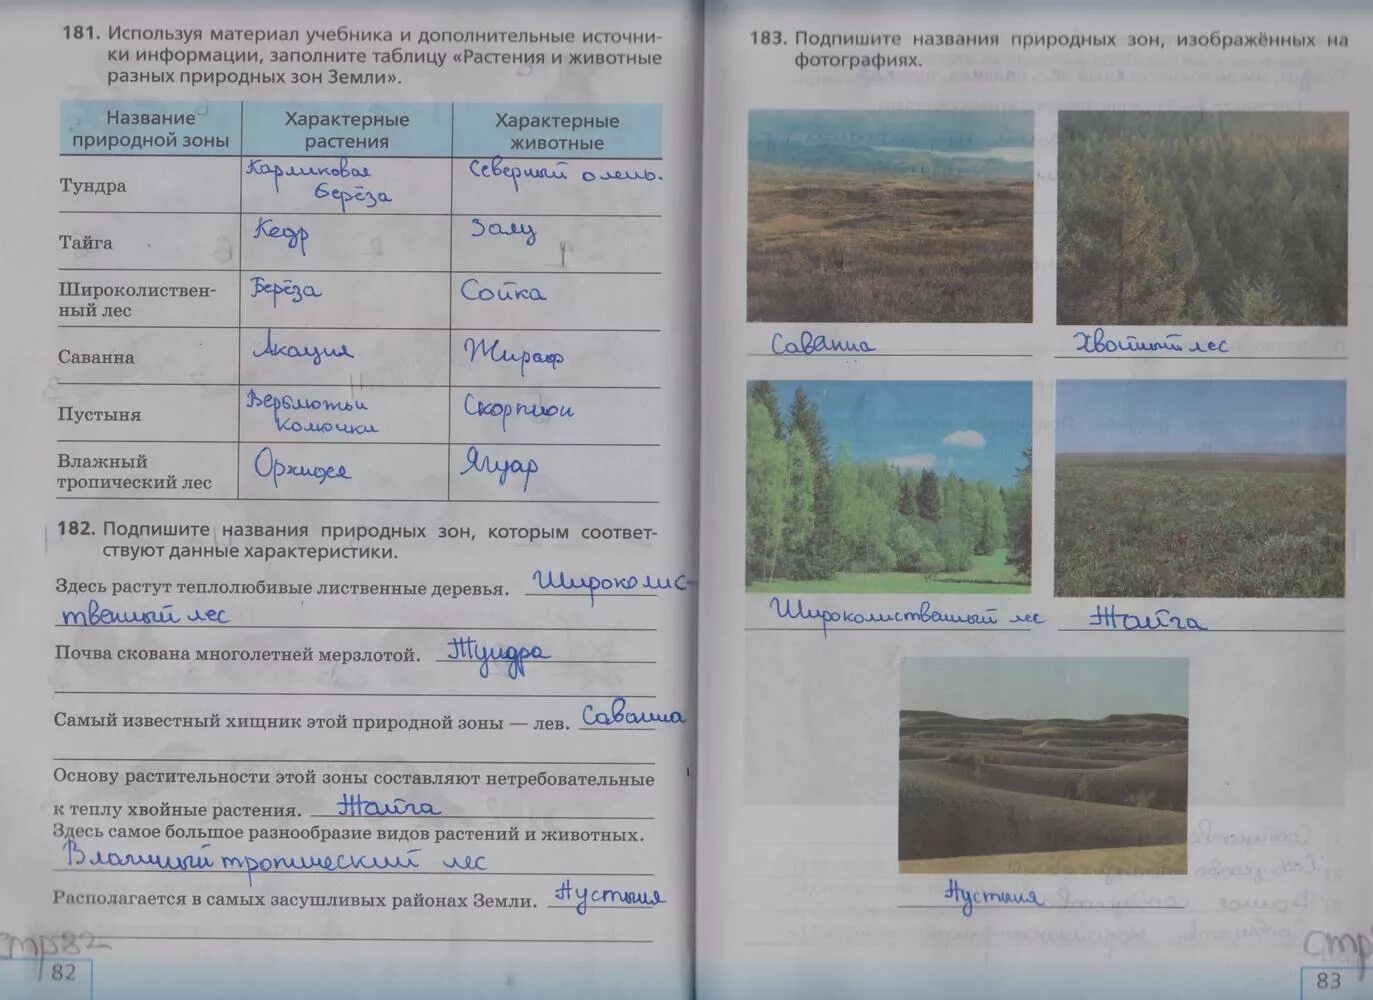 181. Используя материал учебника и дополнительные источни-
ки информации, заполните таблицу «Растения и животные
разных природных зон Земли».
Название природной зоны
Характерные растения
Характерные животные
Тундра
Карликовая берёза
Северный олень.
Тайга
Кедр
Заяц
Широколиствен-
ный лес
Берёза
Сойка
Саванна
Акация
Жираф
Пустыня
Верблютьи колючки
Скорпион
Влажный
тропический лес
Орхидея
Ягуар
182. Подпишите названия природных зон, которым соответ-
ствуют данные характеристики.
Здесь растут теплолюбивые лиственные деревья. Широколис-
твенный лес
Почва скована многолетней мерзлотой. Тундра
Самый известный хищник этой природной зоны — лев. Саванна
Основу растительности этой зоны составляют нетребовательные
к теплу хвойные растения. Тайга
Здесь самое большое разнообразие видов растений и животных.
Влажный тропический лес
Располагается в самых засушливых районах Земли. Пустыня
стр82
82
183. Подпишите названия природных зон, изображённых на
фотографиях.
Саванна
Хвойный лес
Широколиственный лес
Тайга
Пустыня
стр
83